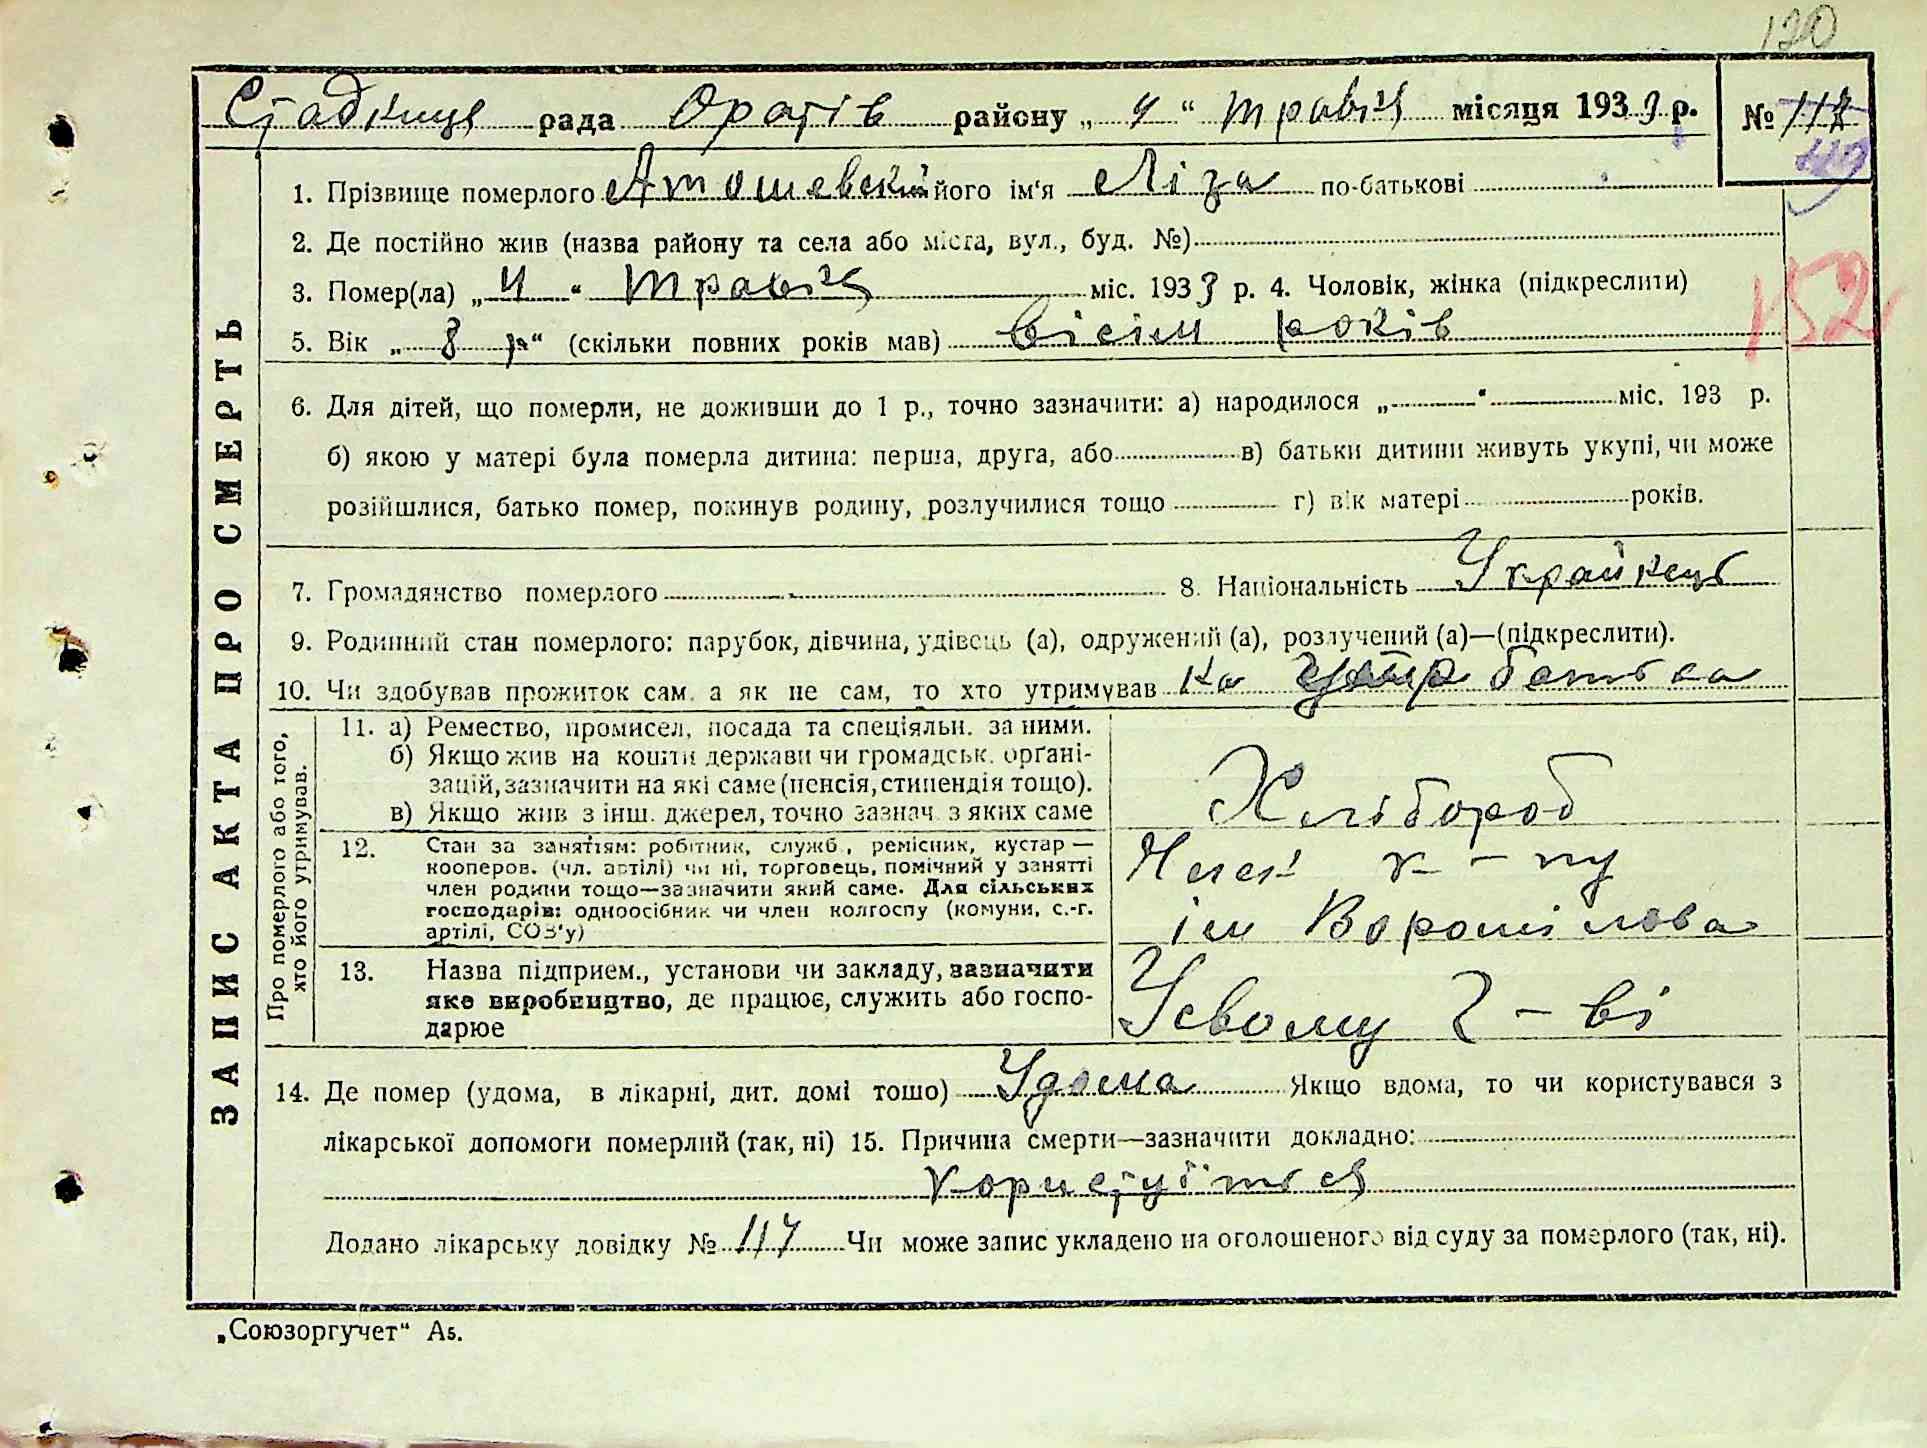 120
Стадниця рада Оратів району „ 4 “ травня місяця 1933 р. № 117
119
1. Прізвище померлого Ятошевский його ім'я Ліза по-батькові
2. Де постійно жив (назва району та села або міста, вул., буд. №)
3. Помер(ла) „ 4 “ травня міс. 1933 р. 4. Чоловік, жінка (підкреслити)
152
5. Вік „ 8 р “ (скільки повних років мав) вісім років
6. Для дітей, що померли, не доживши до 1 р., точно зазначити: а) народилося „ “ міс. 193 р.
б) якою у матері була померла дитина: перша, друга, або в) батьки дитини живуть укупі, чи може
розійшлися, батько помер, покинув родину, розлучилися тощо г) вік матері років.
7. Громадянство померлого 8. Національність Украйнець
9. Родинний стан померлого: парубок, дівчина, удівець (а), одружений (а), розлучений (а)—(підкреслити).
10. Чи здобував прожиток сам, а як не сам, то хто утримував на утр батька
ЗАПИС АКТА ПРО СМЕРТЬ
Про померлого або того, хто його утримував.
11. а) Ремество, промисел, посада та спеціяльн. за ними.
б) Якщо жив на кошти держави чи громадськ. органі-
зацій, зазначити на які саме (пенсія, стипендія тощо).
в) Якщо жив з інш. джерел, точно зазнач. з яких саме
Хлібороб
12. Стан за заняттям: робітник, служб., ремісник, кустар —
кооперов. (чл. артілі) чи ні, торговець, помічний у занятті
член родини тощо—зазначити який саме. Для сільських
господарів: одноосібник чи член колгоспу (комуни, с.-г.
артілі, СОЗ'у)
к-пу
ім Ворошілова
13. Назва підприєм., установи чи закладу, зазначити
яке виробництво, де працює, служить або госпо-
дарює
Усвому г-ві
14. Де помер (удома, в лікарні, дит. домі тощо) Удома Якщо вдома, то чи користувався з
лікарської допомоги померлий (так, ні) 15. Причина смерти—зазначити докладно:
користуїться
Додано лікарську довідку № 117 Чи може запис укладено на оголошеного від суду за померлого (так, ні).
„Союзоргучет“ А5.